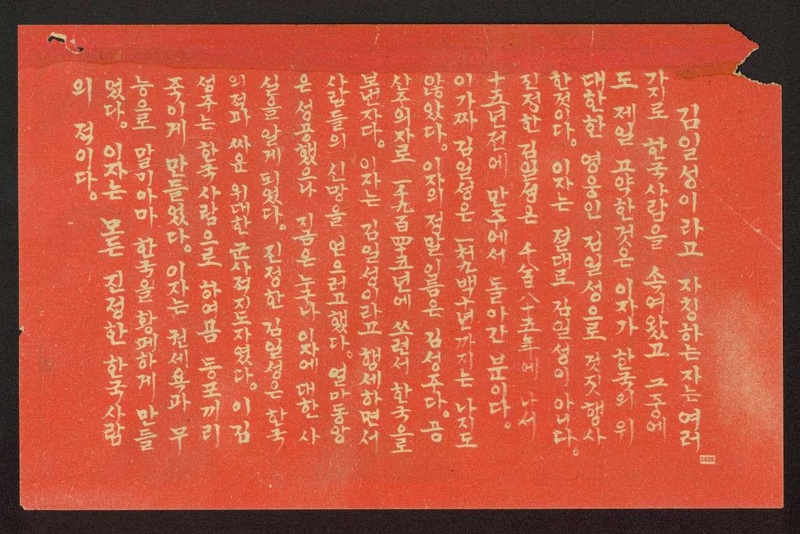 김일성이라고 자칭하는자는 여러
가지로 한국사람을 속여왔고 그중에
도 제일 고약한것은 이자가 한국의 위
대한한 영웅인 김일성으로 것짓 행사
한것이다. 이자는 절대로 김일성이 아니다.
진정한 김일성은 千八百八十五年에 나서
十五년전에 만주에서 돌아간 분이다.
이가짜 김일성은 백十년까지는 나지도
않았다. 이자의 정말 일름은 김성주다. 곰
산주의자로 一千九百四五년에 쏘련서 한국으로
보낸자다. 이자는 김일성이라고 행세하면서
사람들의 신망을 얻으려고했다. 얼마동안
은 성공했으나 지금은 누구나 이자에 대한 사
실을 알게 되였다. 진정한 김일성은 한국
의 적과 싸운 위대한 군사적지도자였다. 이 김
성주는 한국사람으로 하여곰 동포끼리
죽이게 만들었다. 이자는 권세욕과 무
능으로 말미아마 한국을 황폐하게 만들
였다. 이자는 모든 진정한 한국사람
의 적이다.
1028